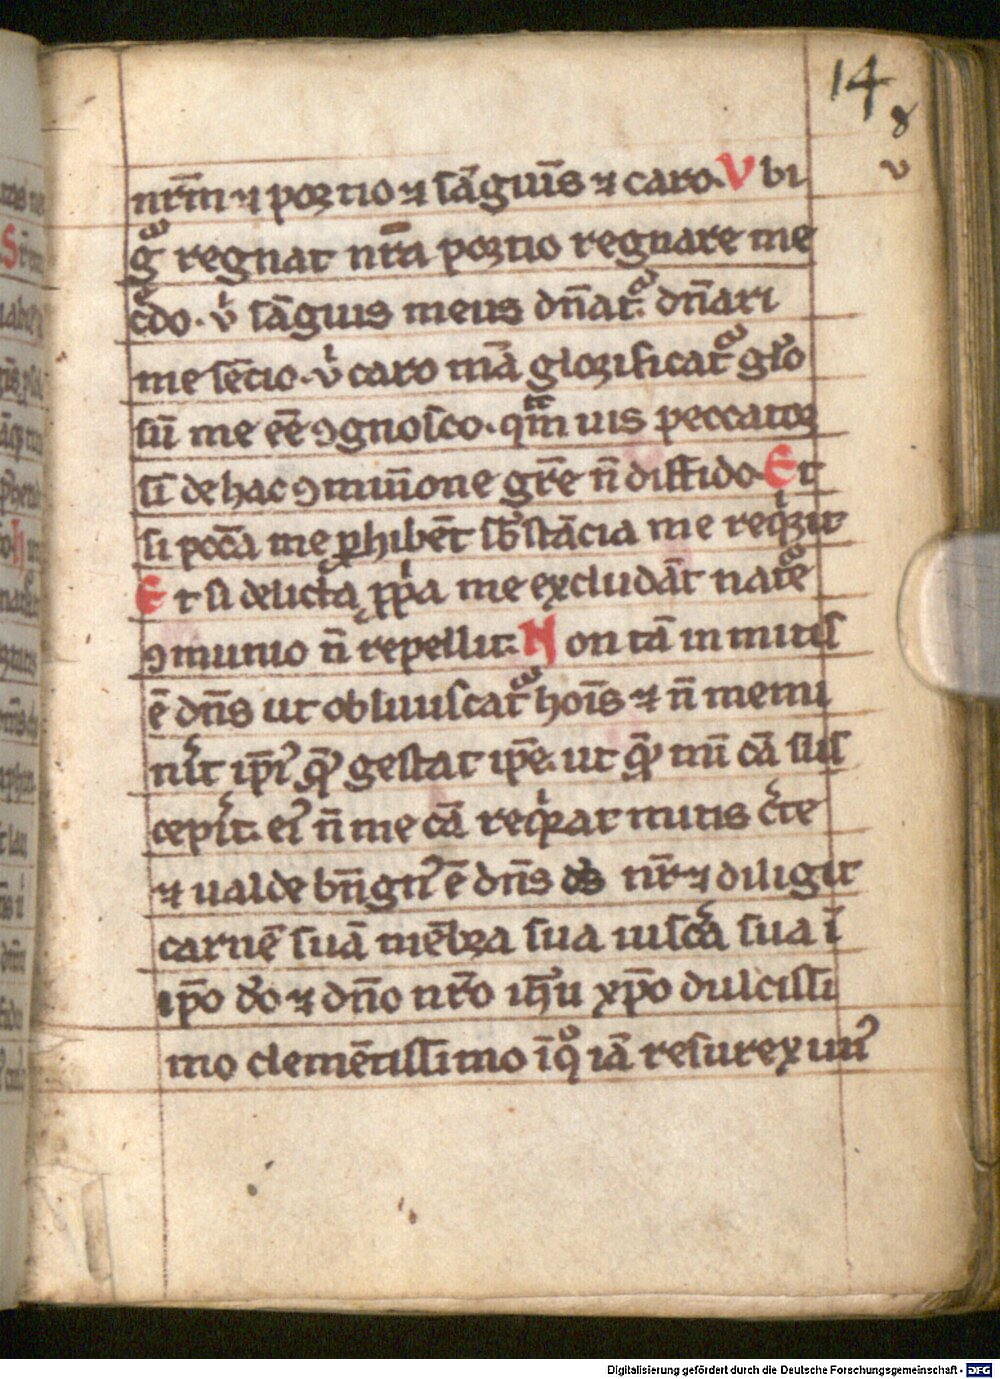 14
nr̄m ⁊ portio ⁊ sāguīs ⁊ caro. Vbi
gͦ regnat nr̄a portio regnare me
c̄do. vͥ sāguis meus dn̄at᷑ dn̄ari
me sēcio. vͥ caro mā glorificat᷑ glo
sū me eē ꝯgnosco. qm̄ uis peccator
si de hac ꝯmuīone gr̄e n̄ diffido. Et
si pccā me ꝓhibēt sb̄stācia me reqͥrit
Et si delicta ꝓpͥa me excludāt nat᷑e
ꝯmunio n̄ repellit. Non tā in mitis
ē dn̄s ut obliuiscat᷑ hoīs ⁊ n̄ memi
nit ip̄iꝰ quē gestat ip̄e. ut quē mī cā sus
cepit. eiꝰ n̄ me cā reqͥrat mitis c͛te
⁊ ualde bn̄gnꝰ ē dn̄s ds nr̄ ⁊ diligit
carnē suā mēbra sua uiscͣa sua ī
ip̄o do ⁊ dn̄o nr̄o ih̄u xp̄o dulcissi
mo clemētissimo ī qͦ iā resureximꝰ
Digitalisierung gefördert durch die Deutsche Forschungsgemeinschaft - DFG